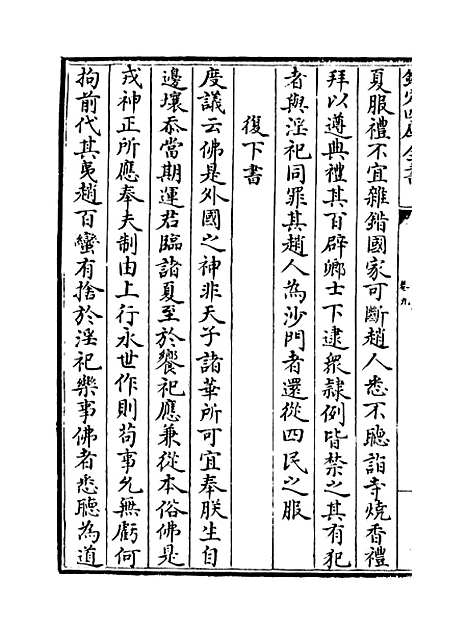 欽定四庫全書
卷九
夏服禮不宜雜錯國家可斷趙人悉不聽詣寺燒香禮
拜以遵典禮其百辟卿士下逮衆隸例皆禁之其有犯
者與淫祀同罪其趙人為沙門者還從四民之服
復下書
度議云佛是外國之神非天子諸華所可宜奉朕生自
邊壤忝當期運君臨諸夏至於饗祀應兼從本俗佛是
戎神正所應奉夫制由上行永世作則苟事允無虧何
拘前代其夷趙百蠻有捨於淫祀樂事佛者悉聽為道